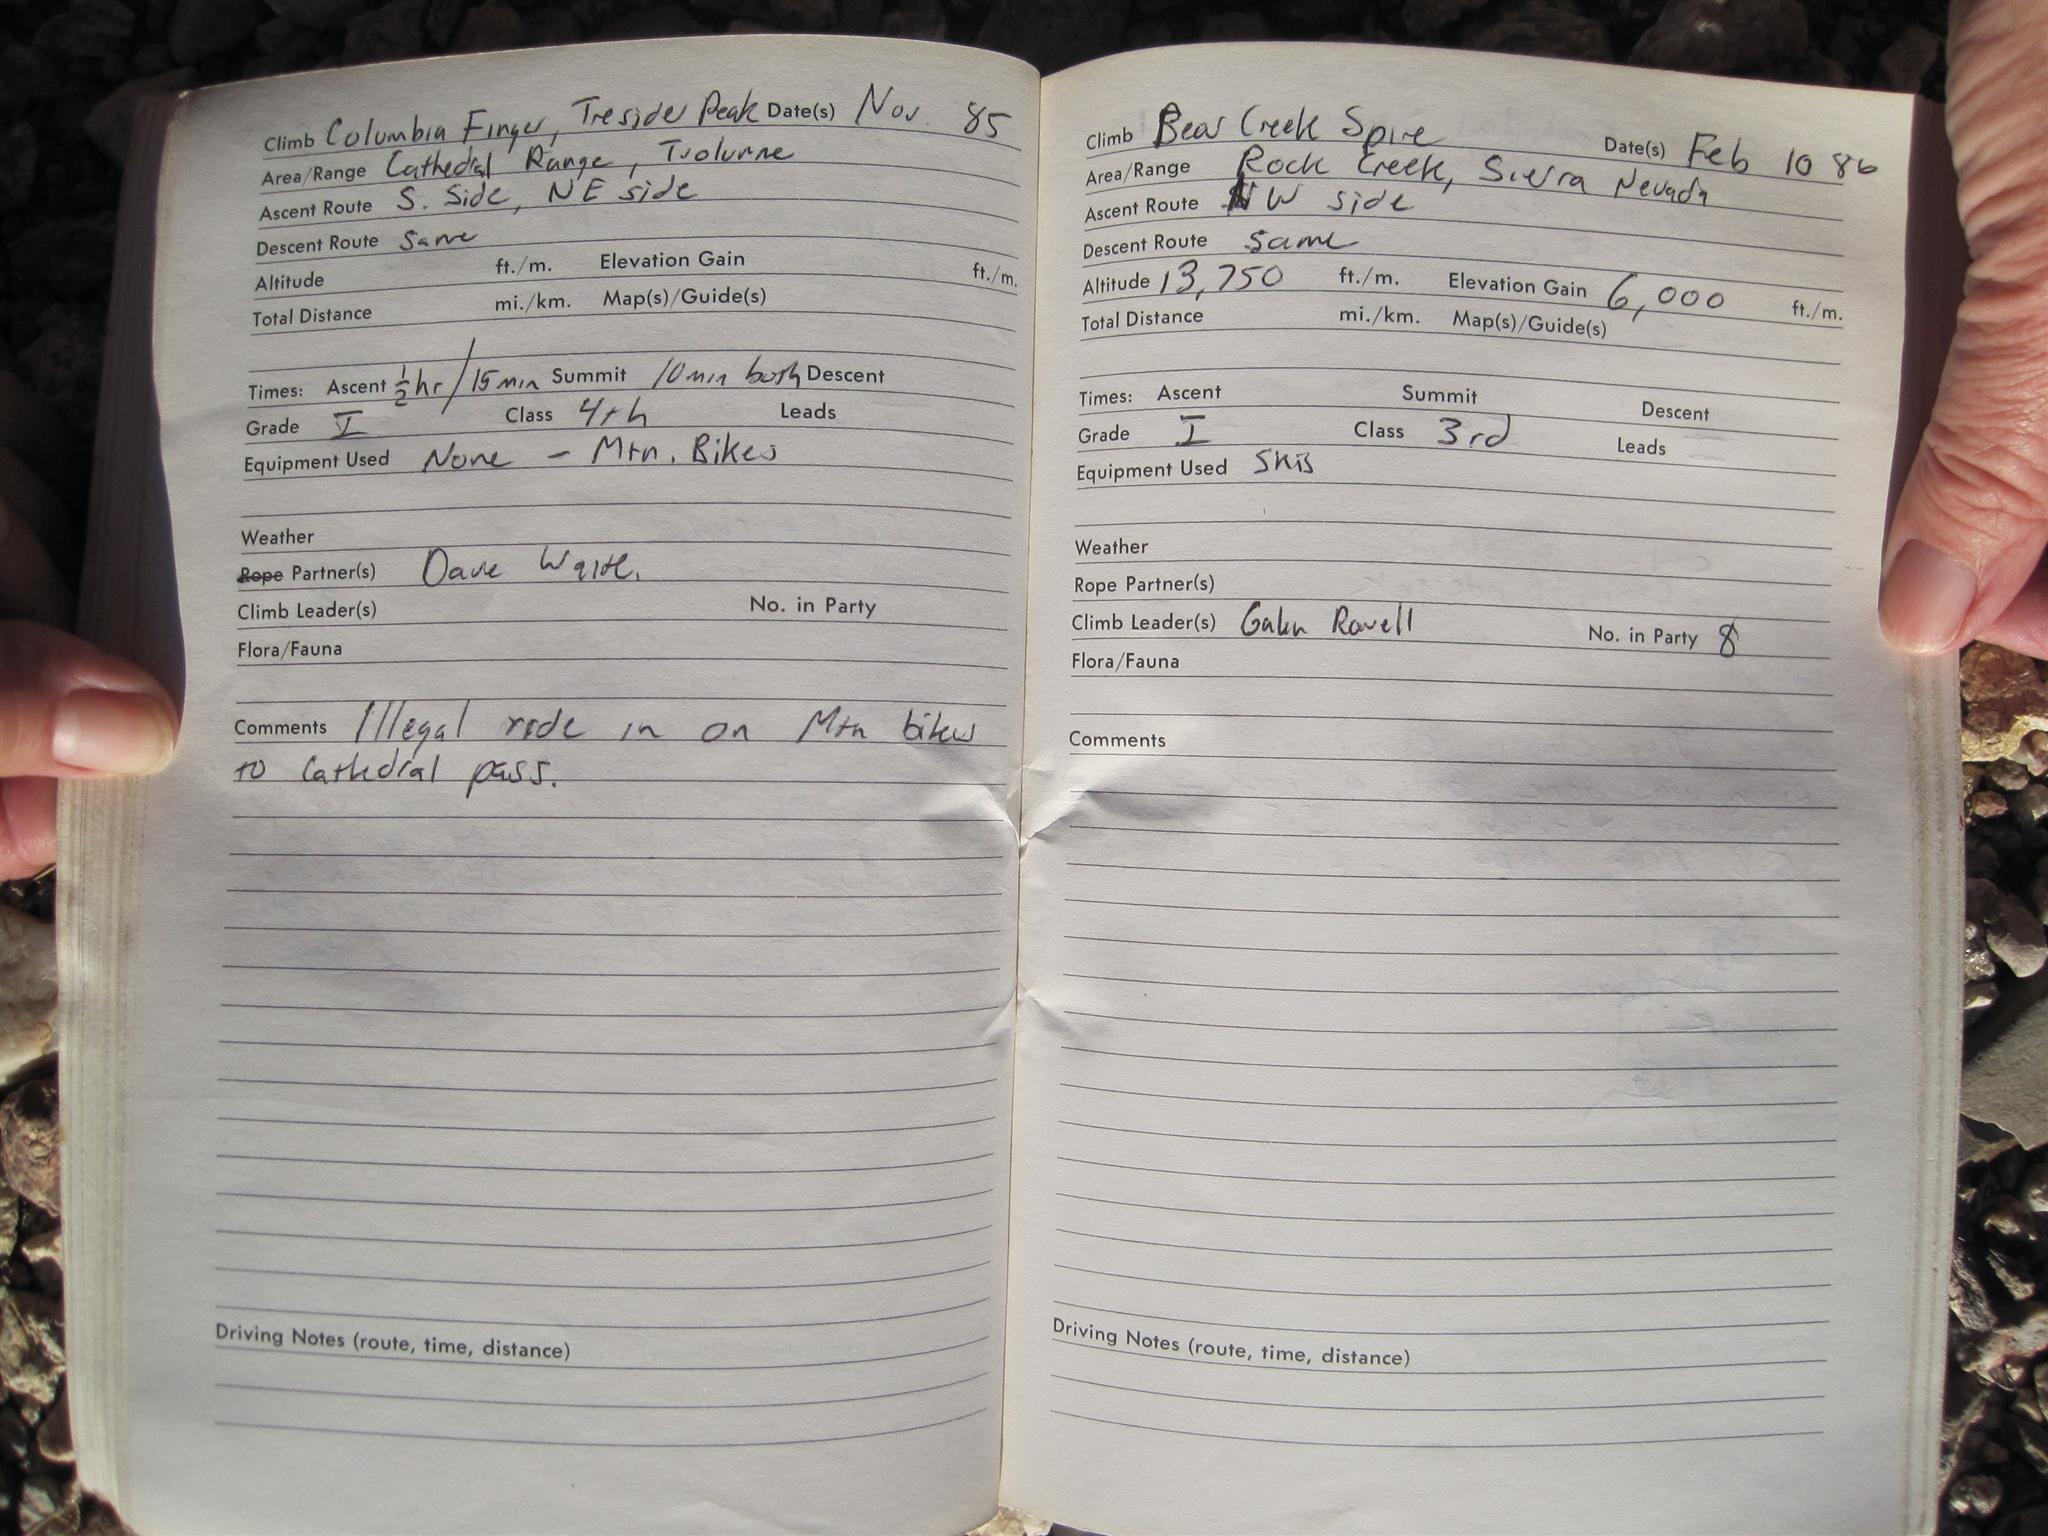 Climb Columbia Finger, Tresider Peak Date(s) Nov. 85
Area/Range Cathedral Range, Tuolumne
Ascent Route S. Side, NE side
Descent Route Same
Altitude ft./m. Elevation Gain ft./m.
Total Distance mi./km. Map(s)/Guide(s)
Times: Ascent 1/2 hr / 15 min Summit 10 min both Descent
Grade I Class 4th Leads
Equipment Used None - Mtn. Bikes
Weather
Rope Partner(s) Dave Waite.
Climb Leader(s) No. in Party
Flora/Fauna
Comments Illegal ride in on Mtn bikes
to Cathedral pass.
Driving Notes (route, time, distance)
Climb Bear Creek Spire Date(s) Feb 10 86
Area/Range Rock Creek, Sierra Nevada
Ascent Route NW side
Descent Route same
Altitude 13,750 ft./m. Elevation Gain 6,000 ft./m.
Total Distance mi./km. Map(s)/Guide(s)
Times: Ascent Summit Descent
Grade I Class 3rd Leads
Equipment Used Skis
Weather
Rope Partner(s)
Climb Leader(s) Galen Rowell No. in Party 8
Flora/Fauna
Comments
Driving Notes (route, time, distance)